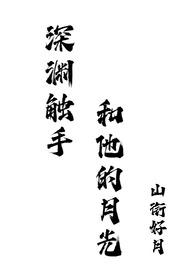 深渊触手
和他的月光
山衔好月